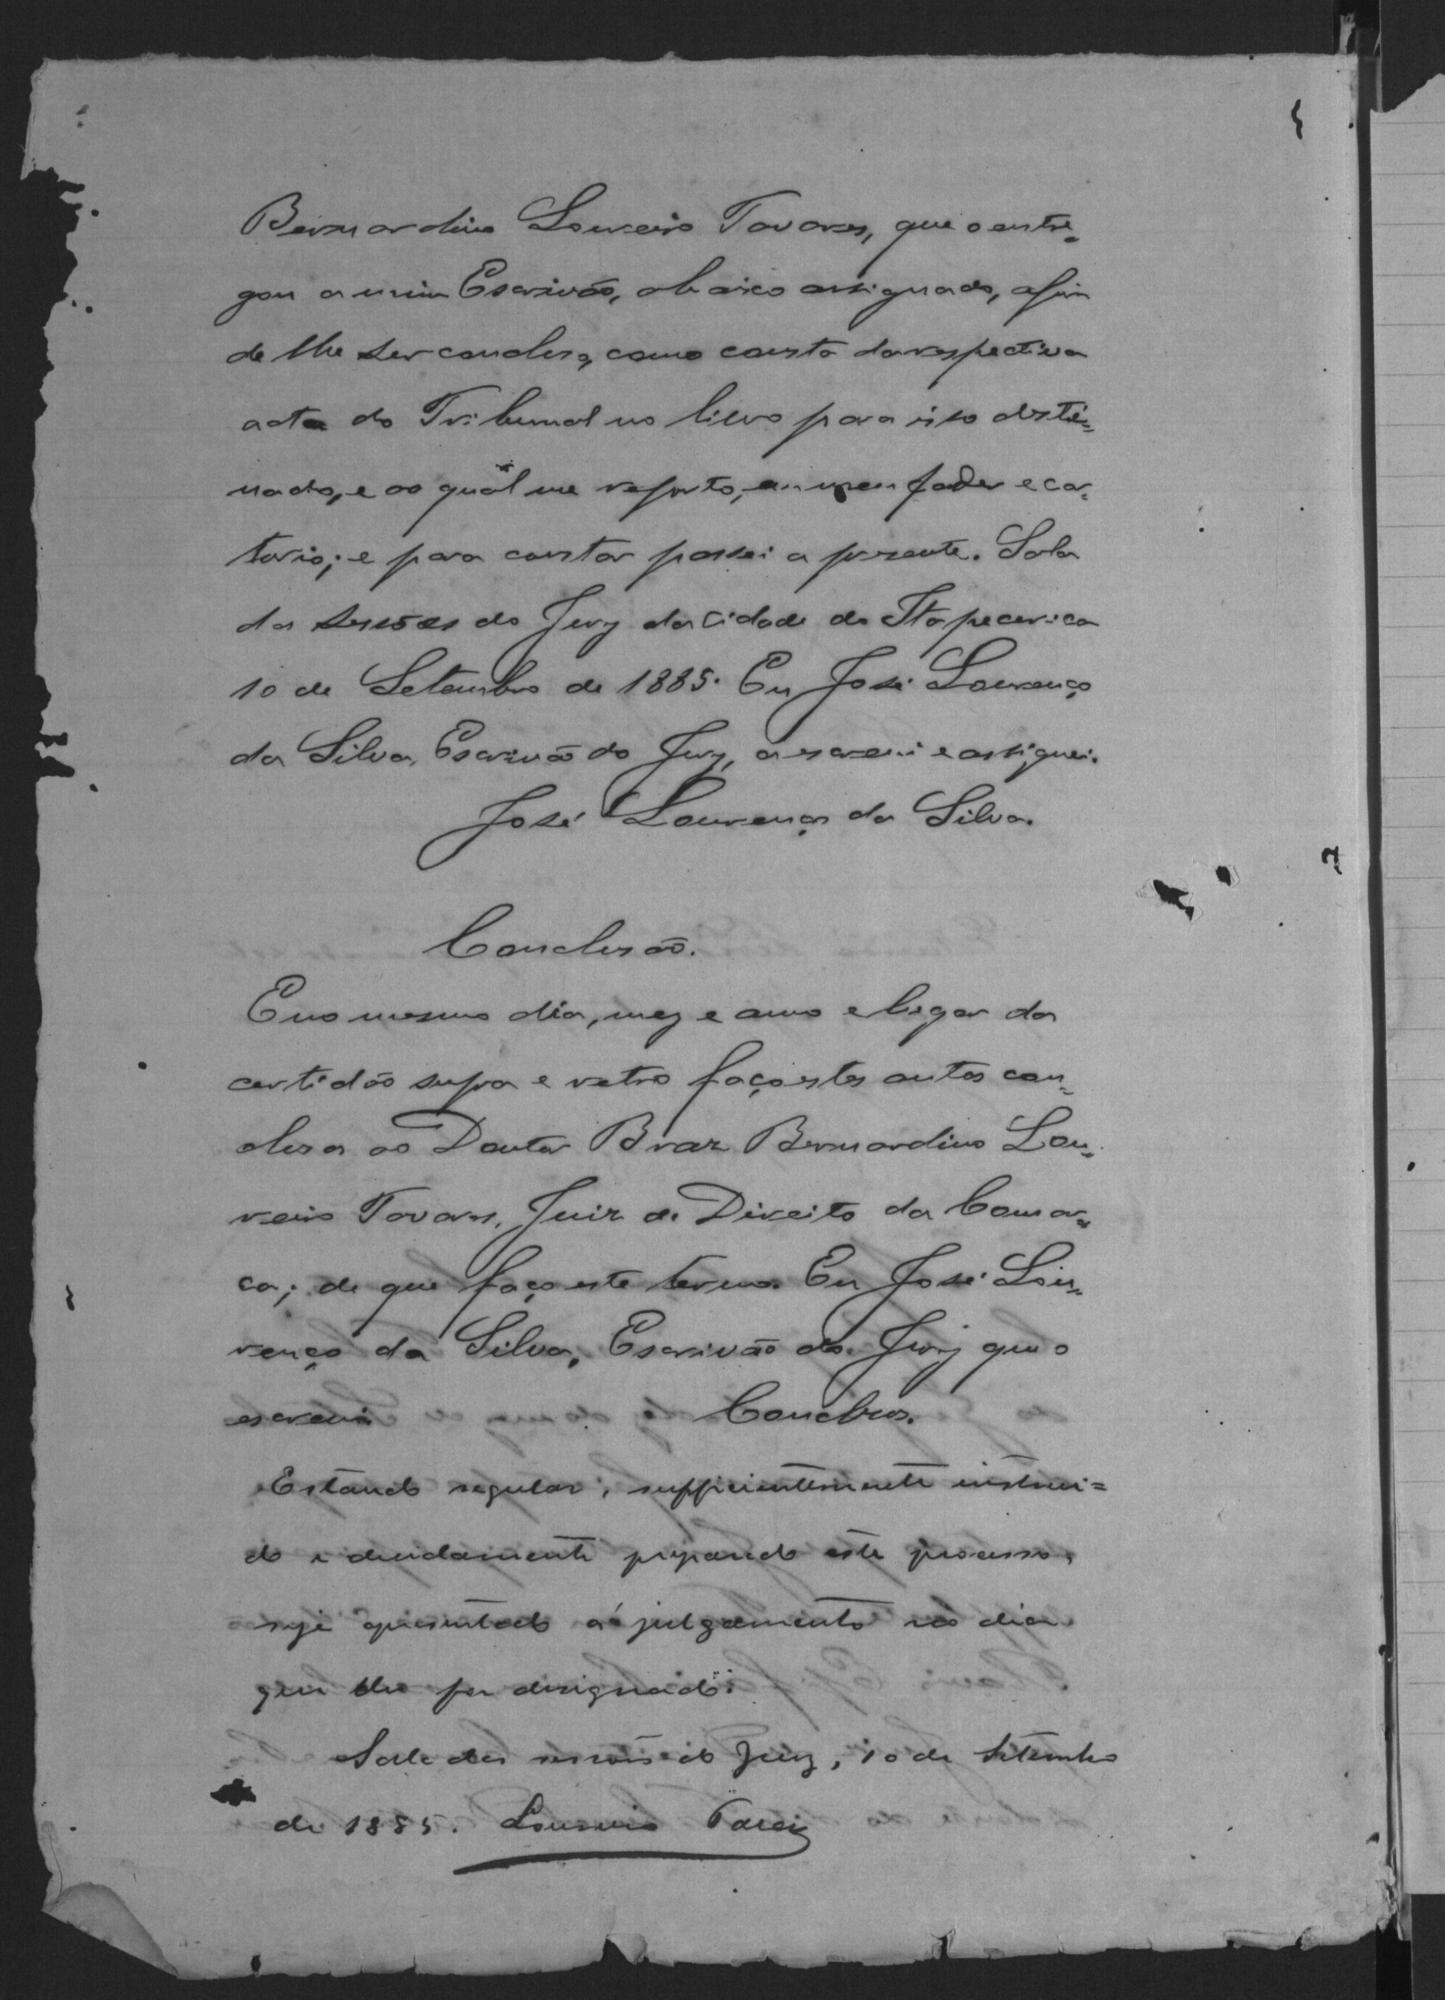 Bernardino Loureiro Tavares, que o entre-
gou a mim Escrivão, abaixo assignado, afim
de lhe ser concluso, como consta da respectiva
acta do Tribunal no livro para isso desti-
nado, e ao qual me reporto, em meu poder e car-
torio; e para constar passei a presente. Sala
das sessões do Jury da Cidade de Itapecerica
10 de Setembro de 1885. Eu José Lourenço
da Silva, Escrivão do Jury, a escrevi e assignei.
José Lourenço da Silva.
Conclusão.
E no mesmo dia, mez e anno e lugar da
certidão supra e retro faço estes autos con-
clusos ao Doutor Braz Bernardino Lou-
reiro Tavares, Juiz de Direito da Comar-
ca; de que faço este termo. Eu José Lou-
renço da Silva, Escrivão do Jury que o
escrevi. Conclusos.
Estando regular, sufficientemente instrui=
do e devidamente preparado este processo,
seja apresentado á julgamento no dia
que lhe for designado.
Sala das sessões do Jury, 10 de Setembro
de 1885. Loureiro Tavares